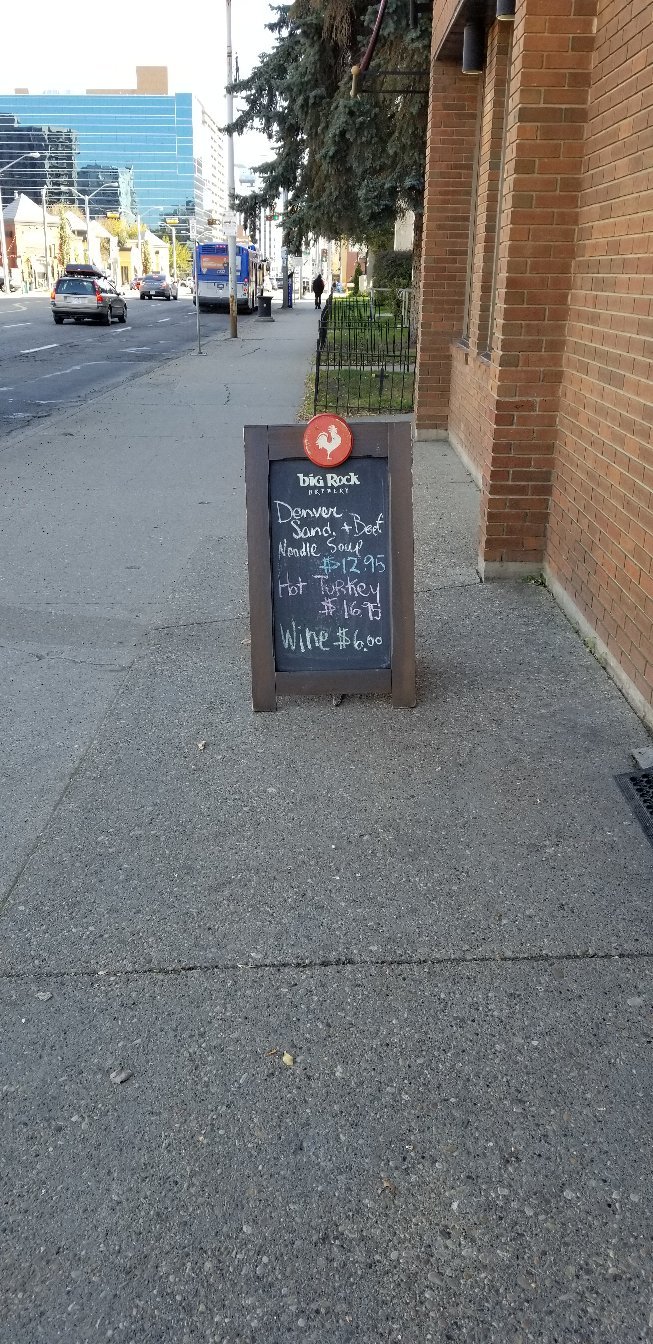 big Rock
BREWERY
Denver
Sand. + Beef
Noodle Soup
$12.95
Hot Turkey
$16.95
Wine $6.00